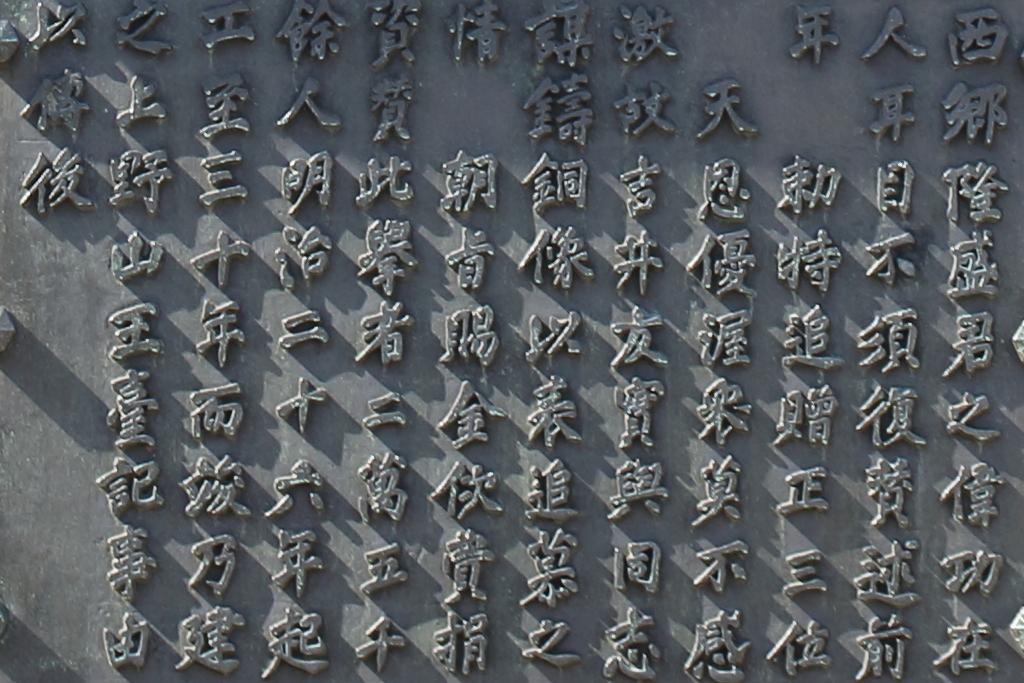 西郷隆盛君之偉功在
人耳目不須復賛述前
年
勅特追贈正三位
天恩優渥衆莫不感
激故吉井友實與同志
謀鑄銅像以表追慕之
情
朝旨賜金佽費捐
資賛此擧者二萬五千
餘人明治二十六年起
工至三十年而竣乃建
之上野山王臺記事由
以傳後